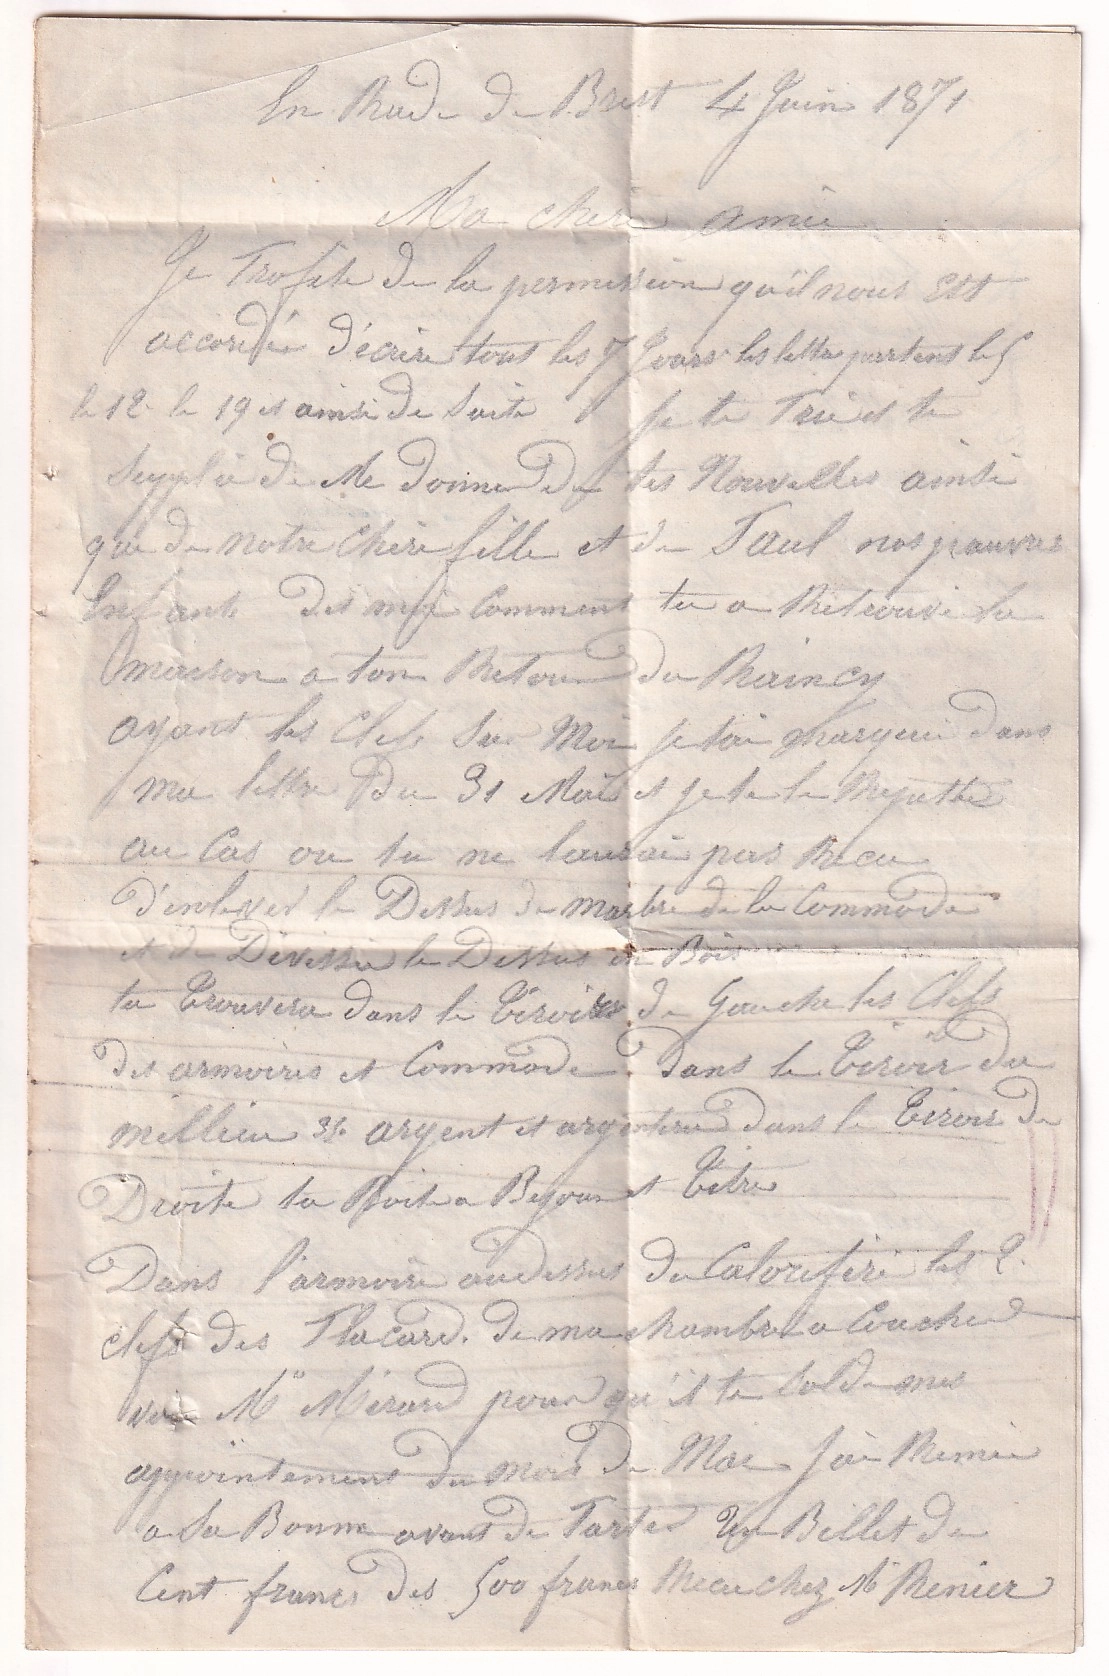 En Rade de Brest 4 Juin 1871
Ma chere amie
Je Profite de la permission qu'il nous Est
accordée d'écrire tous les 7 Jours les lettre partent le 5
le 12 le 19 et ainsi de Suite Je te Prie et te
Supplie de Me donner De tes Nouvelles ainsi
que de notre Chere fille et de Paul nos pauvres
Enfants dis moi Comment tu a Retrouvé la
maison a ton Retour du Raincy
ayant les Clefs Sur Moi je tai chargeé dans
ma lettre Du 31 Mai et je te le Repette
au Cas ou tu ne laurai pas Recu
d'enlever le Dessus de marbre de la Commode
et de Dévisser le Dessus en Bois
tu trouvera dans le tiroir de Gauche les Clefs
des armoires et Commode. dans le tiroir du
millieu argent et argenterie dans le tiroir de
Droite ta Boite a Bijoux et titre
Dans l'armoire audessus du Calorifere les 2
clefs des Placard. de ma chambre a Coucher
voir Mr Mérard pour qu'il te Solde mes
appointement du mois de Mai J'ai Remis
a la Bonne avant de Partir Un Billet de
Cent francs des 500 francs Recu chez Mr Renier